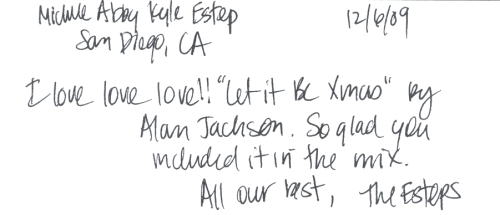 Michele Abby Kyle Estep 12/6/09
San Diego, CA
I love love love!! "Let it Be Xmas" by
Alan Jackson. So glad you
included it in the mix.
All our best, The Esteps